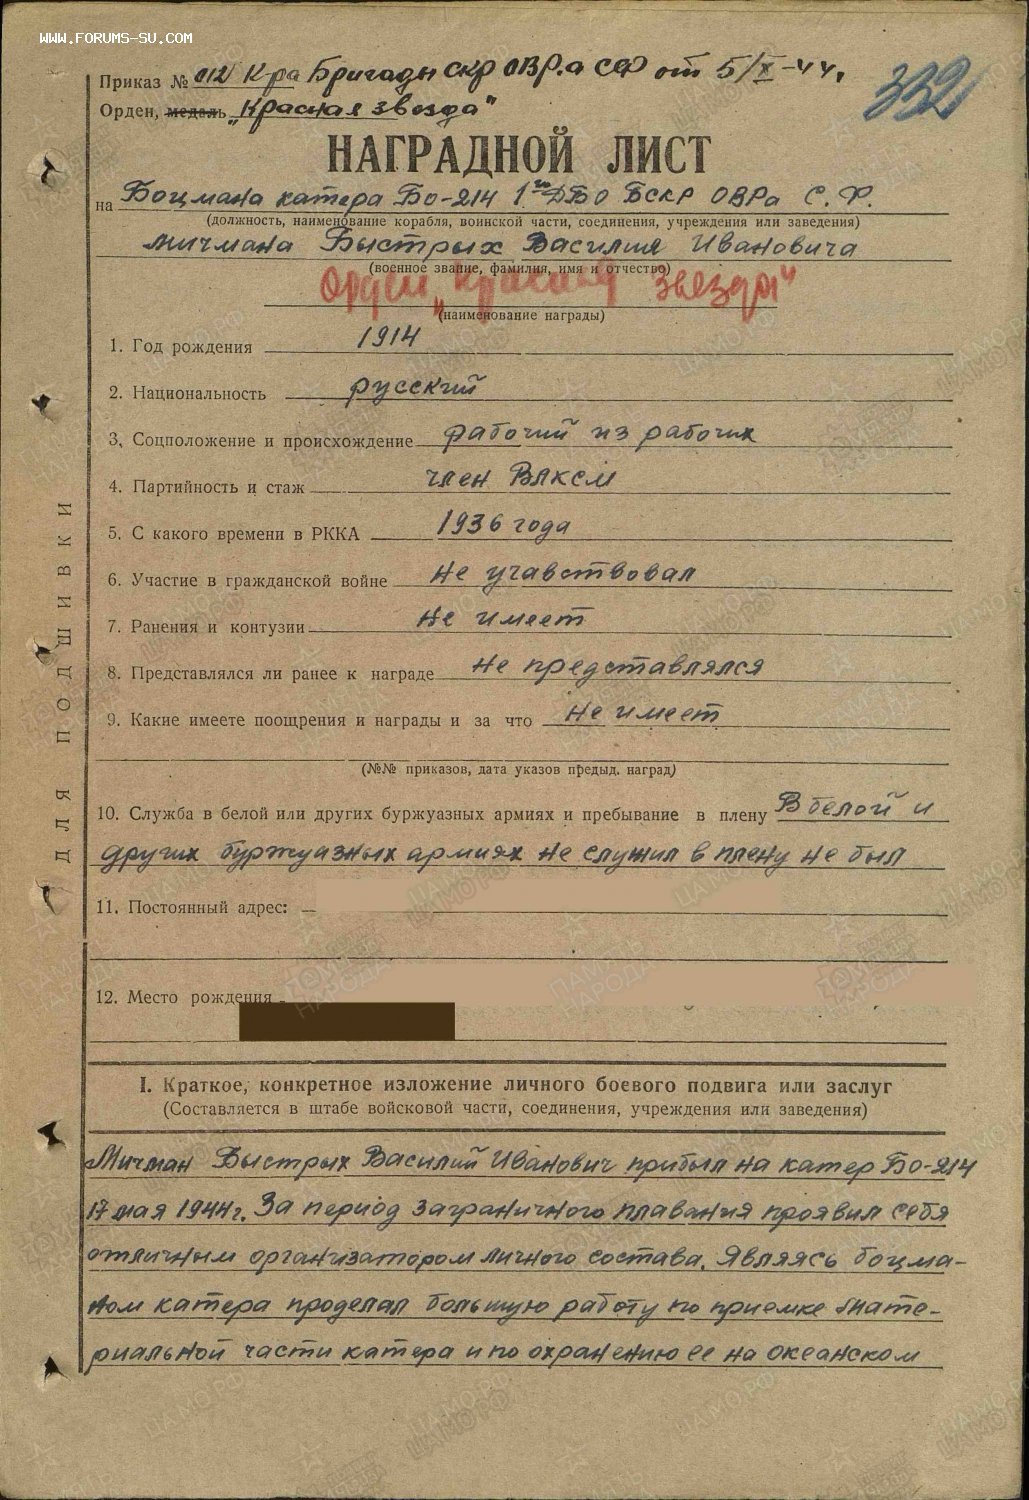 WWW.FORUMS-SU.COM
Приказ № 012 К-ра Бригады СКР ОВР.а СФ от 5/X-44.
332
Орден, медаль „Красная звезда"
НАГРАДНОЙ ЛИСТ
на Боцмана катера БО-214 1го ДБО БСКР ОВРа С.Ф.
(должность, наименование корабля, воинской части, соединения, учреждения или заведения)
мичмана Быстрых Василия Ивановича
(военное звание, фамилия, имя и отчество)
Орден „Красная звезда"
(наименование награды)
1. Год рождения 1914
2. Национальность русский
3. Соцположение и происхождение рабочий из рабочих
4. Партийность и стаж член ВЛКСМ
5. С какого времени в РККА 1936 года
6. Участие в гражданской войне не учавствовал
7. Ранения и контузии не имеет
8. Представлялся ли ранее к награде не представлялся
9. Какие имеете поощрения и награды и за что не имеет
(№№ приказов, дата указов предыд. наград)
10. Служба в белой или других буржуазных армиях и пребывание в плену В белой и
других буржуазных армиях не служил в плену не был
11. Постоянный адрес:
12. Место рождения
ДЛЯ ПОДШИВКИ
I. Краткое, конкретное изложение личного боевого подвига или заслуг
(Составляется в штабе войсковой части, соединения, учреждения или заведения)
Мичман Быстрых Василий Иванович прибыл на катер БО-214
17 мая 1944г. За период заграничного плавания проявил себя
отличным организатором личного состава. Являясь боцма-
ном катера проделал большую работу по приемке мате-
риальной части катера и по охранению ее на океанском